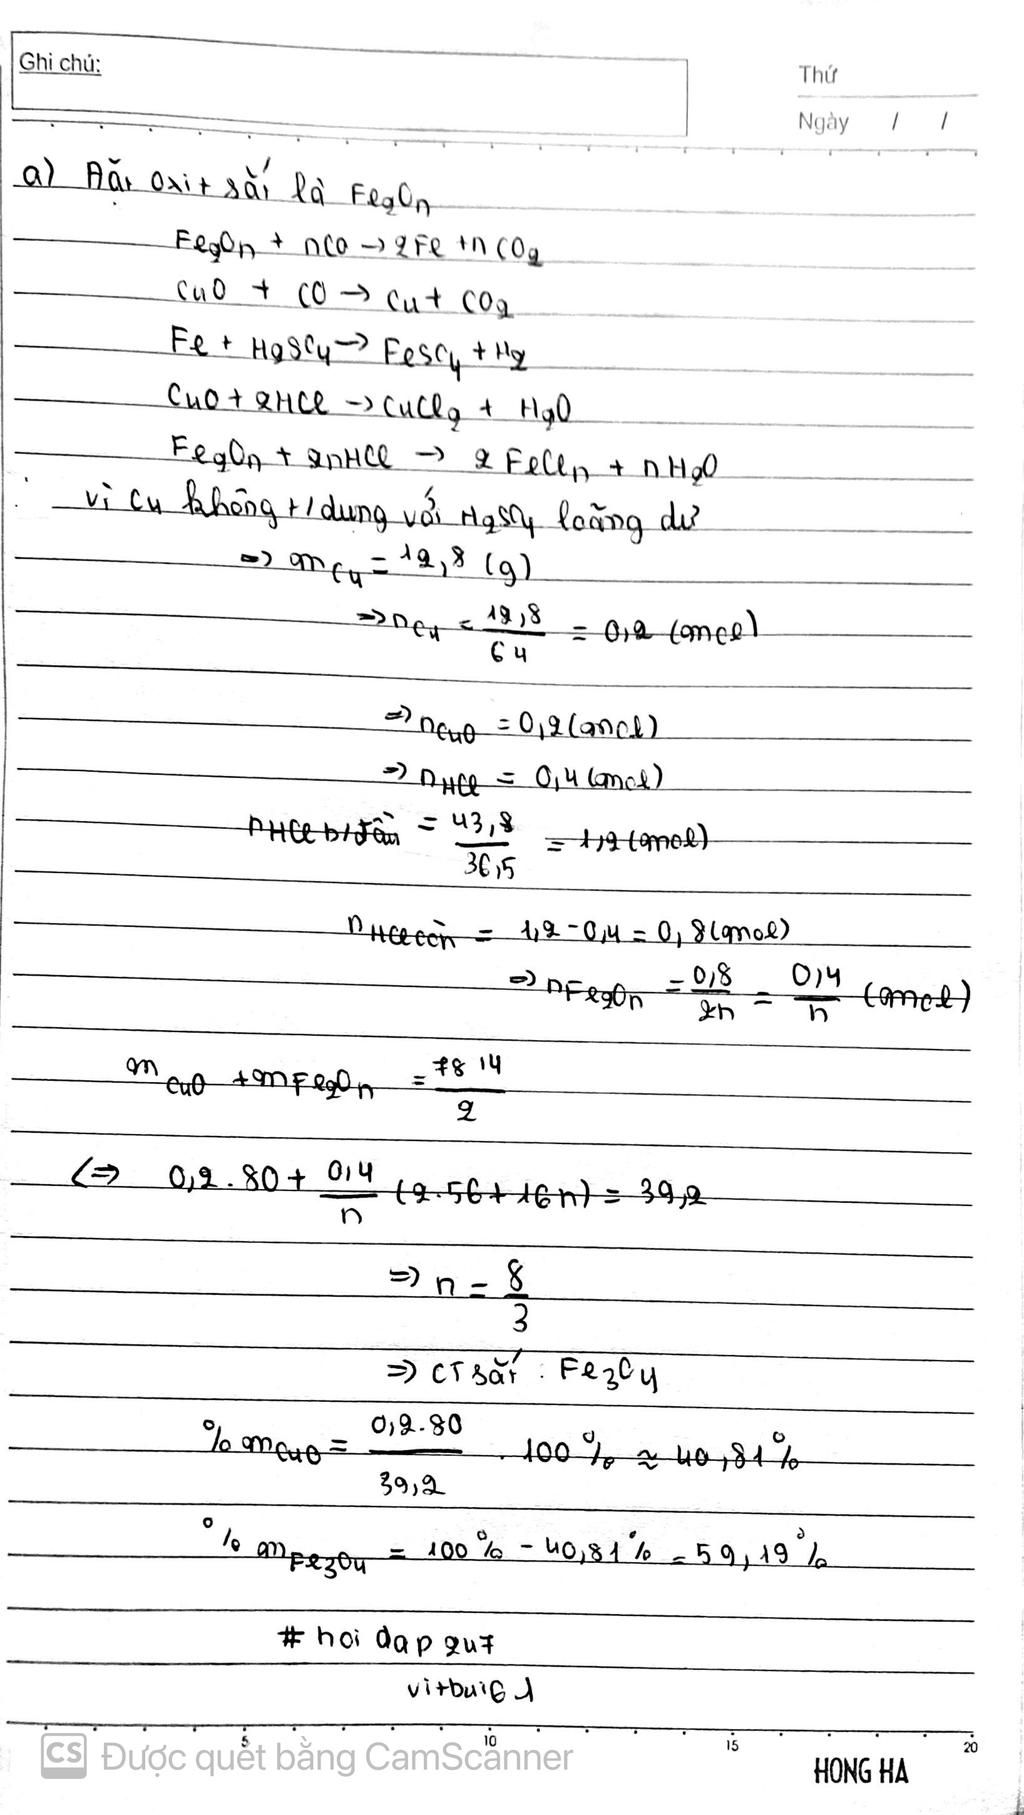 Ghi chú:
Thứ
Ngày / /
a) Đặt oxit sắt là Fe2On
Fe2On + nCO → 2Fe + nCO2
CuO + CO → Cu + CO2
Fe + H2SO4 → FeSO4 + H2
CuO + 2HCl → CuCl2 + H2O
Fe2On + 2nHCl → 2FeCln + nH2O
vì Cu không t/dụng với H2SO4 loãng dư
=> mCu = 12,8 (g)
=> nCu = 12,8/64 = 0,2 (mol)
=> nCuO = 0,2 (mol)
=> nHCl = 0,4 (mol)
nHCl b/đầu = 43,8/36,5 = 1,2 (mol)
nHCl còn = 1,2 - 0,4 = 0,8 (mol)
=> nFe2On = 0,8/2n = 0,4/n (mol)
mCuO + mFe2On = 78,4/2
<=> 0,2.80 + 0,4/n (2.56 + 16n) = 39,2
=> n = 8/3
=> CT sắt : Fe3O4
%mCuO = 0,2.80/39,2 . 100% ≈ 40,81%
%mFe3O4 = 100% - 40,81% = 59,19%
# hoi dap 247
vitbui61
5 10 15 20
CS Được quét bằng CamScanner
HONG HA